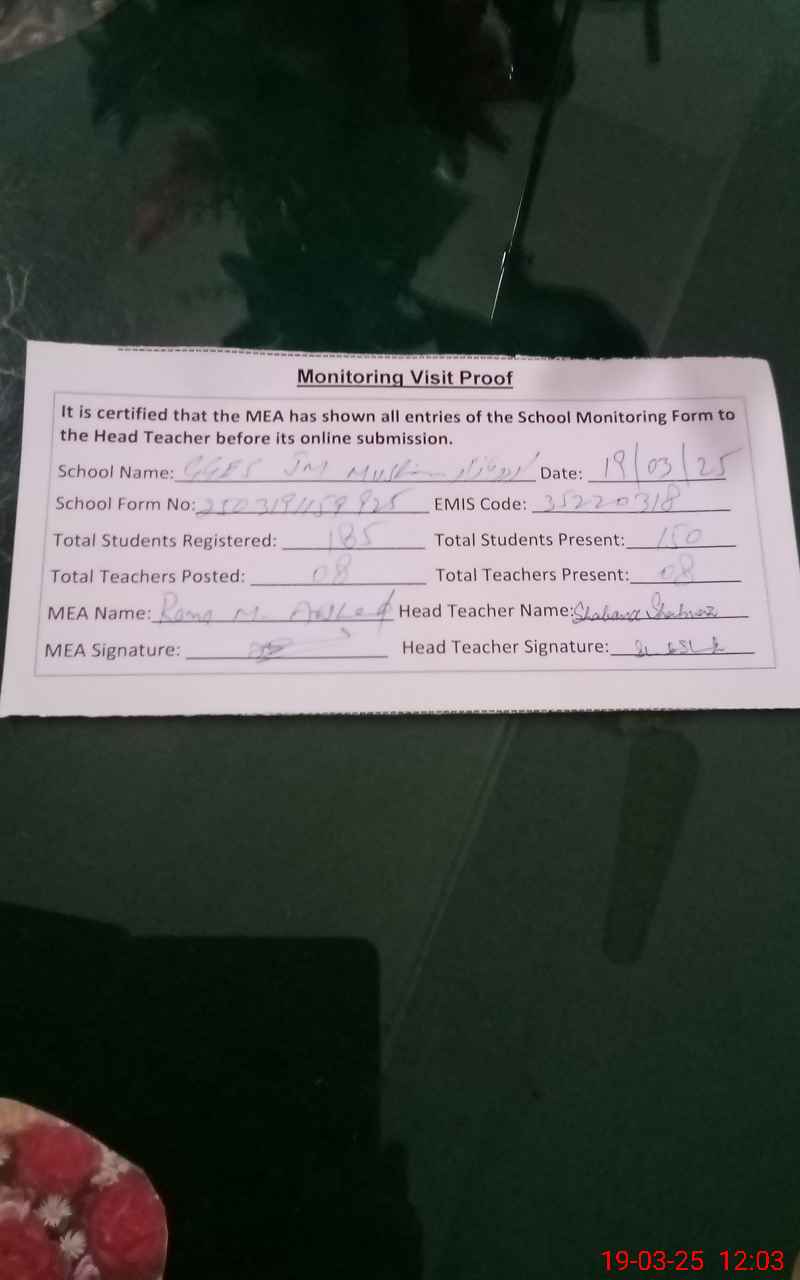 Monitoring Visit Proof
It is certified that the MEA has shown all entries of the School Monitoring Form to
the Head Teacher before its online submission.
School Name: GGES JM Muslim Date: 19/03/25
School Form No: EMIS Code: 35220318
Total Students Registered: 185 Total Students Present: 150
Total Teachers Posted: 08 Total Teachers Present: 08
MEA Name: Rana M. Head Teacher Name: Shabana Shahnaz
MEA Signature: Head Teacher Signature:
19-03-25 12:03